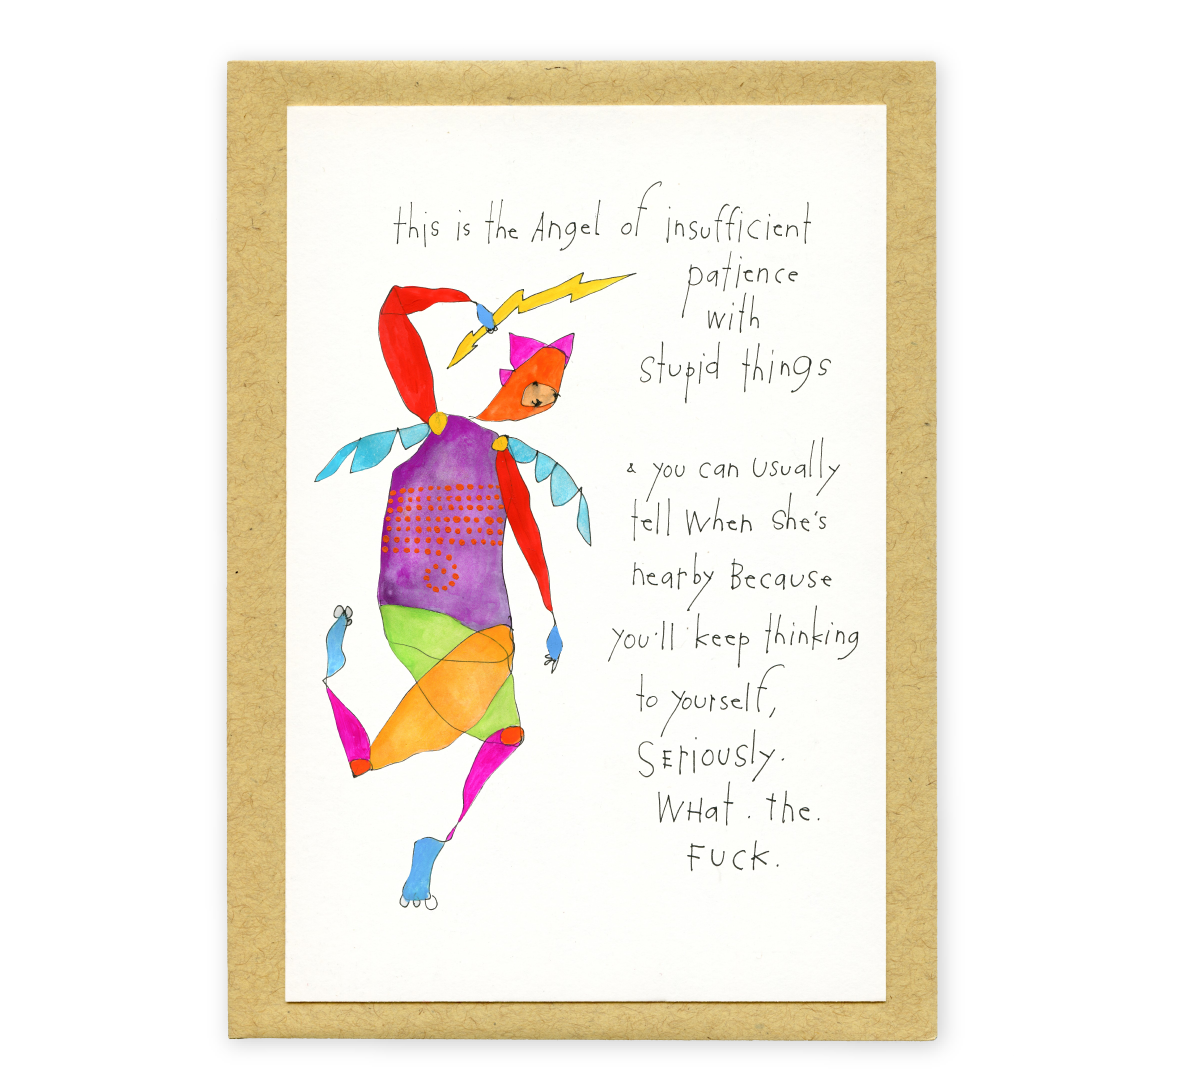 this is the Angel of insufficient
patience
with
stupid things
& you can usually
tell when she's
nearby Because
you'll keep thinking
to yourself,
SEriously.
WHat. the.
FUCK.